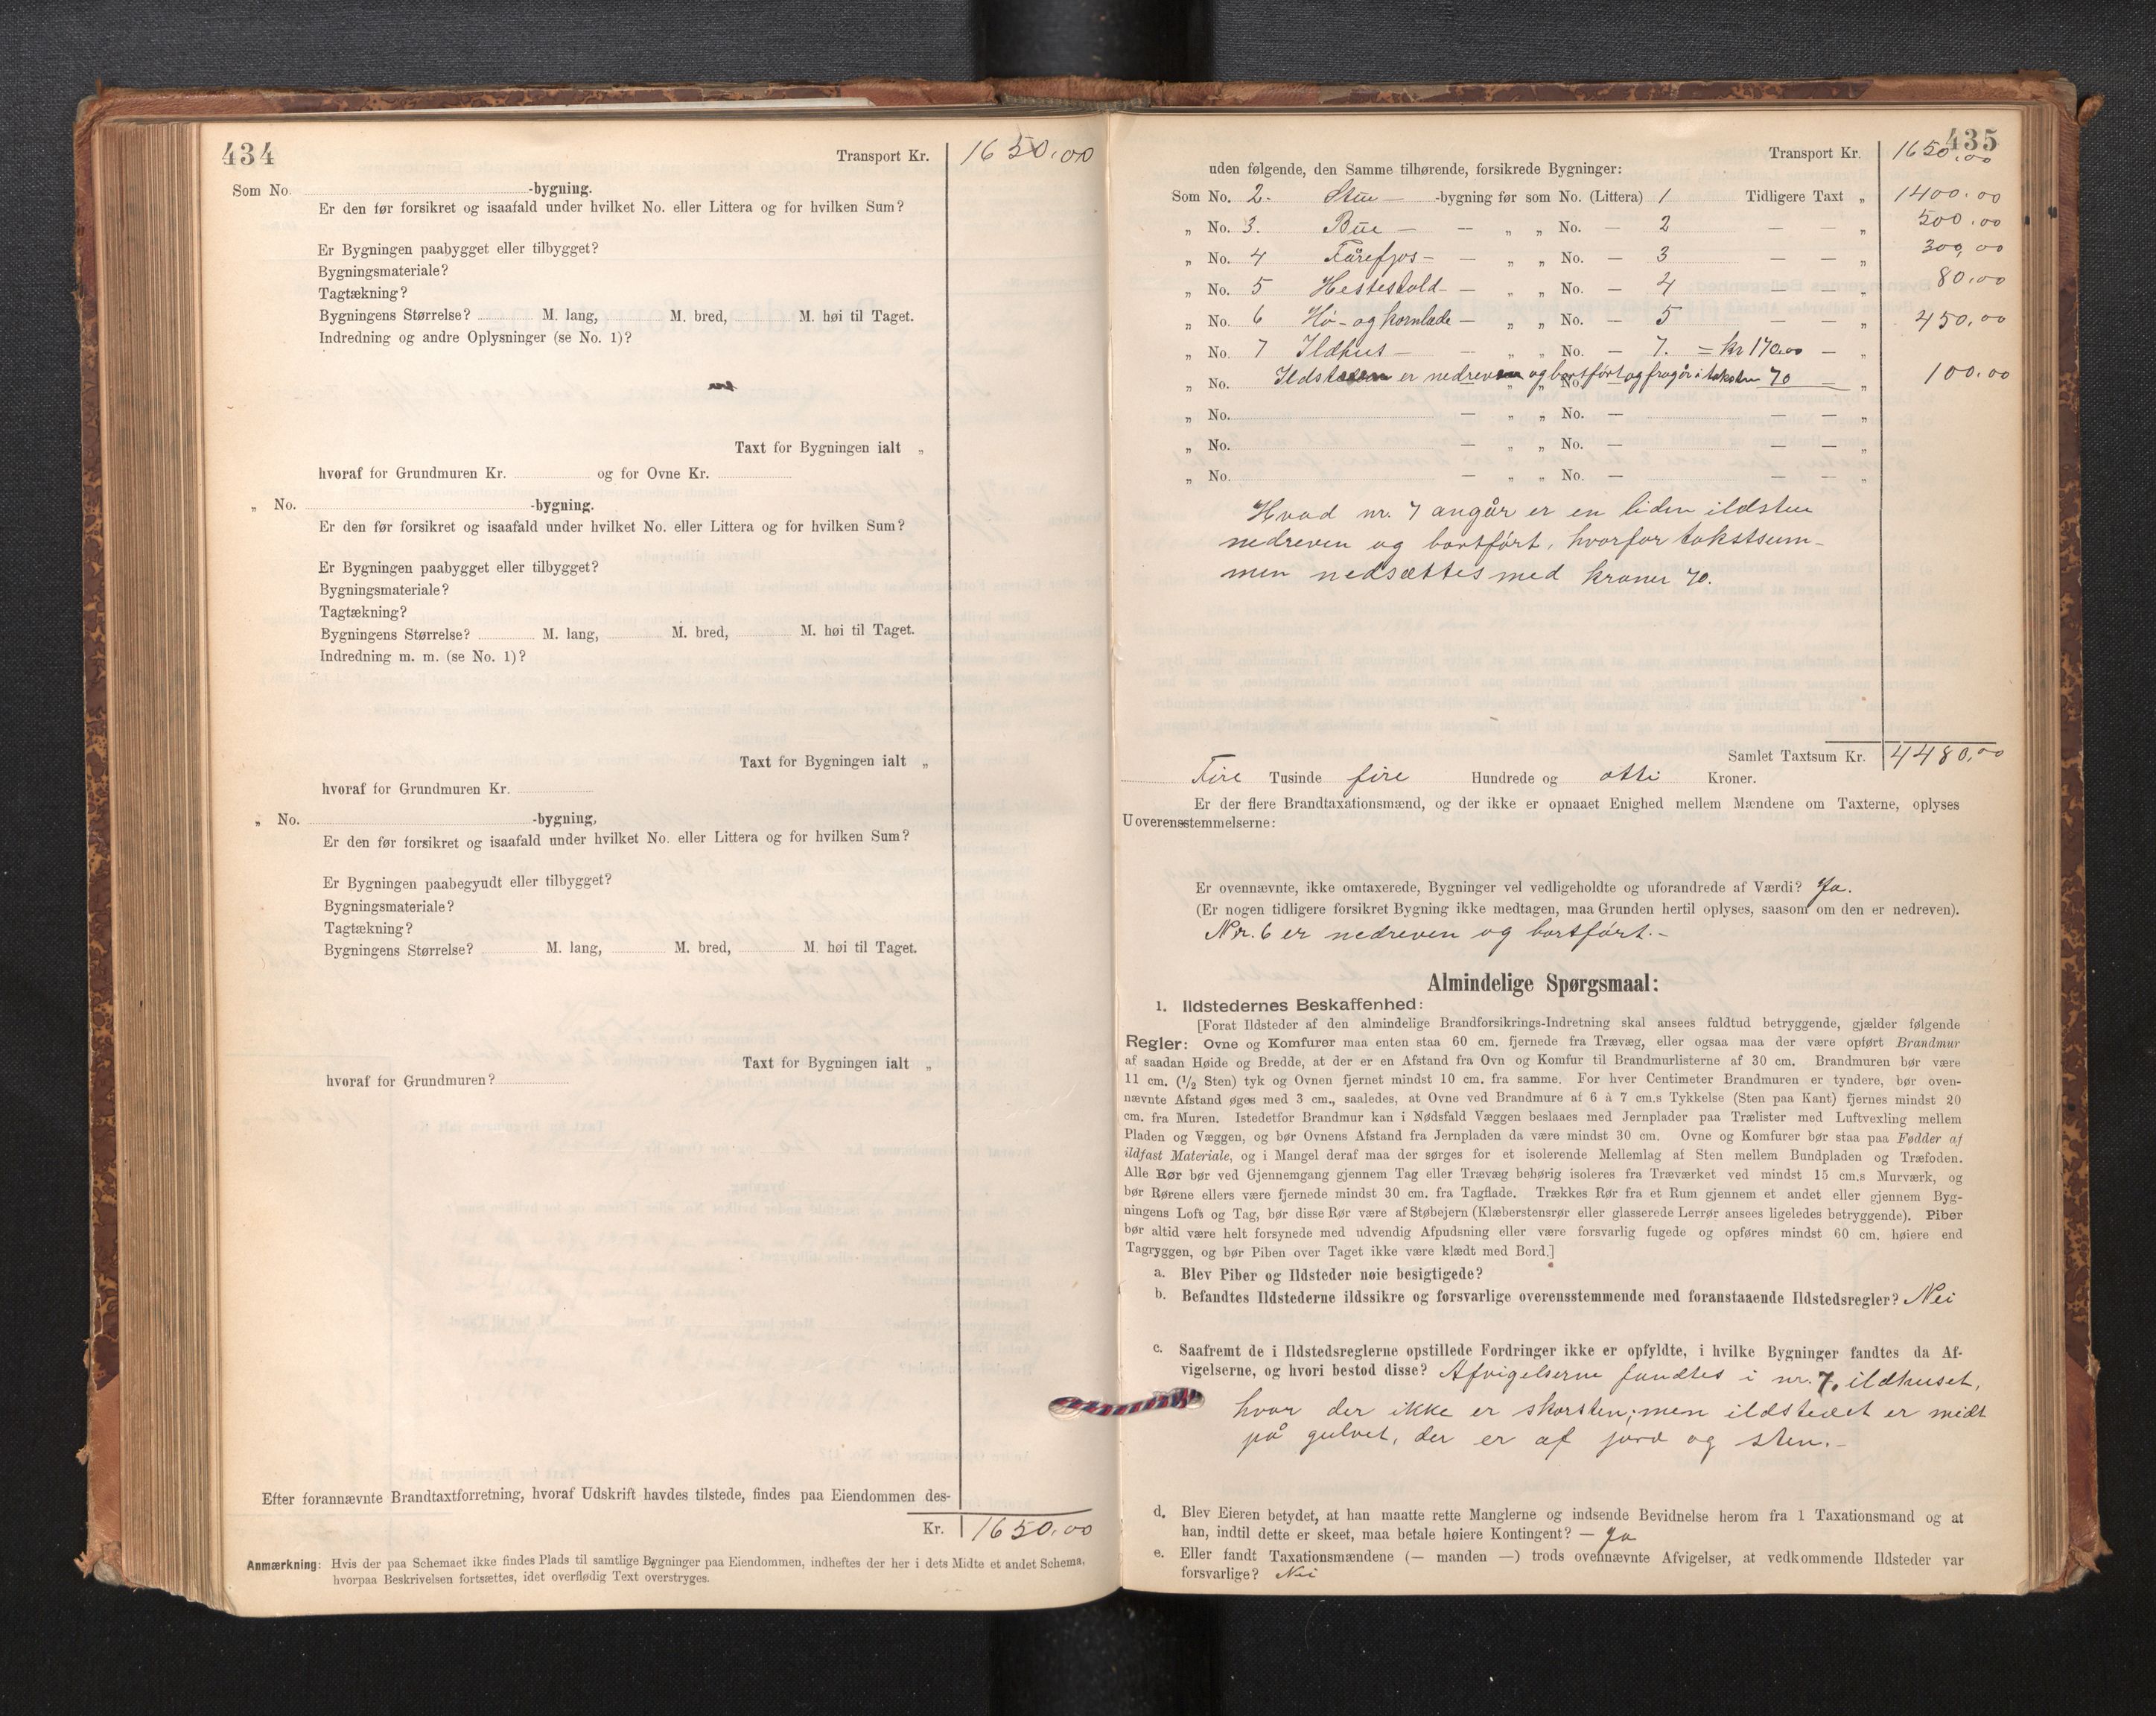 434
Transport Kr. 1650,00
Som No. -bygning.
Er den før forsikret og isaafald under hvilket No. eller Littera og for hvilken Sum?
Er Bygningen paabygget eller tilbygget?
Bygningsmateriale?
Tagtækning?
Bygningens Størrelse? M. lang, M. bred, M. høi til Taget.
Indredning og andre Oplysninger (se No. 1)?
Taxt for Bygningen ialt „
hvoraf for Grundmuren Kr. og for Ovne Kr.
„ No. -bygning.
Er den før forsikret og isaafald under hvilket No. eller Littera og for hvilken Sum?
Er Bygningen paabygget eller tilbygget?
Bygningsmateriale?
Tagtækning?
Bygningens Størrelse? M. lang, M. bred, M. høi til Taget.
Indredning m. m. (se No. 1)?
Taxt for Bygningen ialt „
hvoraf for Grundmuren Kr.
„ No. -bygning,
Er den før forsikret og isaafald under hvilket No. eller Littera og for hvilken Sum?
Er Bygningen paabegyudt eller tilbygget?
Bygningsmateriale?
Tagtækning?
Bygningens Størrelse? M. lang, M. bred, M. høi til Taget.
Taxt for Bygningen ialt „
hvoraf for Grundmuren?
Efter forannævnte Brandtaxtforretning, hvoraf Udskrift havdes tilstede, findes paa Eiendommen des-
Kr. 1650,00
Anmærkning: Hvis der paa Schemaet ikke findes Plads til samtlige Bygninger paa Eiendommen, indheftes der her i dets Midte et andet Schema,
hvorpaa Beskrivelsen fortsættes, idet overflødig Text overstryges.
435
Transport Kr. 1650,00
uden følgende, den Samme tilhørende, forsikrede Bygninger:
Som No. 2. Stue- -bygning før som No. (Littera) 1 Tidligere Taxt „ 1400,00
„ No. 3. Bue — — „ „ No. — 2 — — „ 500,00
„ No. 4 Fårefjos- — „ „ No. — 3 — — „ 300,00
„ No. 5 Hestestald- — „ „ No. — 4 — — „ 80,00
„ No. 6 Hø- og kornlade — „ „ No. — 5 — — „ 450,00
„ No. 7 Ildhus — — „ „ No. — 7. = kr 170,00 — „
„ No. er nedreven og bortført og fragår i taksten 70 — „ 100,00
„ No. — „ „ No. — — — „
„ No. — „ „ No. — — — „
„ No. — „ „ No. — — — „
Hvad nr. 7 angår er en liden ildsten
nedreven og bortført, hvorfor takstsum-
men nedsættes med kroner 70.
Samlet Taxtsum Kr. 4480,00
Fire Tusinde fire Hundrede og otti Kroner.
Er der flere Brandtaxationsmænd, og der ikke er opnaaet Enighed mellem Mændene om Taxterne, oplyses
Uoverensstemmelserne:
Er ovennævnte, ikke omtaxerede, Bygninger vel vedligeholdte og uforandrede af Værdi? Ja.
(Er nogen tidligere forsikret Bygning ikke medtagen, maa Grunden hertil oplyses, saasom om den er nedreven).
Nr. 6 er nedreven og bortført.-
Almindelige Spørgsmaal:
1. Ildstedernes Beskaffenhed:
[Forat Ildsteder af den almindelige Brandforsikrings-Indretning skal ansees fuldtud betryggende, gjælder følgende
Regler: Ovne og Komfurer maa enten staa 60 cm. fjernede fra Trævæg, eller ogsaa maa der være opført Brandmur
af saadan Høide og Bredde, at der er en Afstand fra Ovn og Komfur til Brandmurlisterne af 30 cm. Brandmuren bør være
11 cm. (1/2 Sten) tyk og Ovnen fjernet mindst 10 cm. fra samme. For hver Centimeter Brandmuren er tyndere, bør oven-
nævnte Afstand øges med 3 cm., saaledes, at Ovne ved Brandmure af 6 à 7 cm.s Tykkelse (Sten paa Kant) fjernes mindst 20
cm. fra Muren. Istedetfor Brandmur kan i Nødsfald Væggen beslaaes med Jernplader paa Trælister med Luftvexling mellem
Pladen og Væggen, og bør Ovnens Afstand fra Jernpladen da være mindst 30 cm. Ovne og Komfurer bør staa paa Fødder af
ildfast Materiale, og i Mangel deraf maa der sørges for et isolerende Mellemlag af Sten mellem Bundpladen og Træfoden.
Alle Rør bør ved Gjennemgang gjennem Tag eller Trævæg behørig isoleres fra Træværket ved mindst 15 cm.s Murværk, og
bør Rørene ellers være fjernede mindst 30 cm. fra Tagflade. Trækkes Rør fra et Rum gjennem et andet eller gjennem Byg-
ningens Loft og Tag, bør disse Rør være af Støbejern (Klæberstensrør eller glasserede Lerrør ansees ligeledes betryggende). Piber
bør altid være helt forsynede med udvendig Afpudsning eller være forsvarlig fugede og opføres mindst 60 cm. høiere end
Tagryggen, og bør Piben over Taget ikke være klædt med Bord.]
a. Blev Piber og Ildsteder nøie besigtigede?
b. Befandtes Ildstederne ildssikre og forsvarlige overensstemmende med foranstaaende Ildstedsregler? Nei
c. Saafremt de i Ildstedsreglerne opstillede Fordringer ikke er opfyldte, i hvilke Bygninger fandtes da Af-
vigelserne, og hvori bestod disse? Afvigelserne fandtes i nr. 7, ildhuset,
hvor der ikke er skorsten; men ildstedet er midt
på gulvet, der er af jord og sten.-
d. Blev Eieren betydet, at han maatte rette Manglerne og indsende Bevidnelse herom fra 1 Taxationsmand og at
han, indtil dette er skeet, maa betale høiere Kontingent? — Ja
e. Eller fandt Taxationsmændene (— manden —) trods ovennævnte Afvigelser, at vedkommende Ildsteder var
forsvarlige? Nei